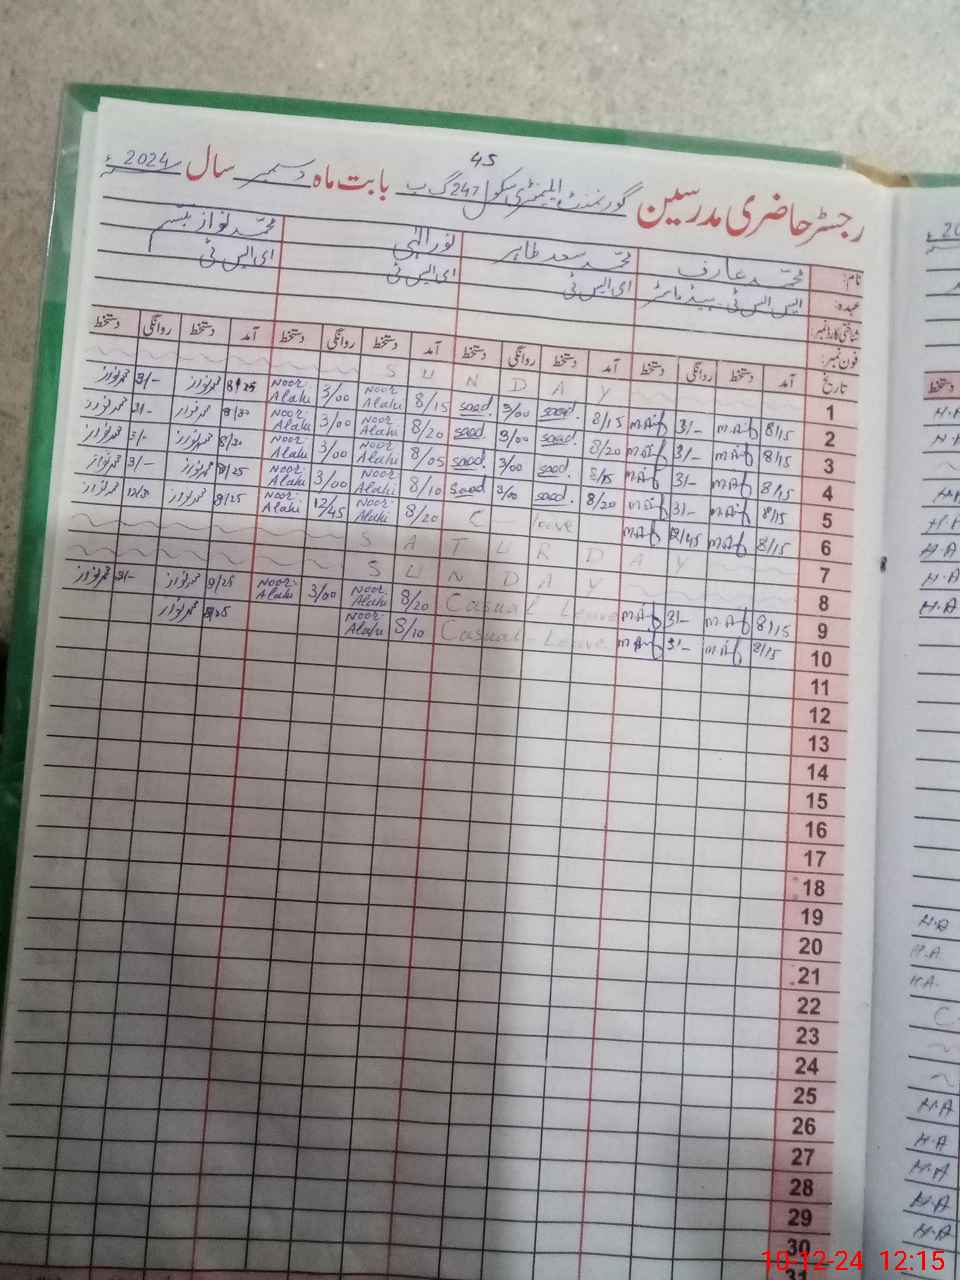 45
رجسٹر حاضری مدرسین گورنمنٹ ایلیمنٹری سکول 247 گ ب بابت ماہ دسمبر سال 2024ء
نام: محمد عارف محمد سعد طاہر نور الٰہی محمد نواز
عہدہ: ایس ایس ٹی ہیڈ ماسٹر ای ایس ٹی ای ایس ٹی ای ایس ٹی
شناختی کارڈ نمبر:
فون نمبر:
تاریخ آمد دستخط روانگی دستخط آمد دستخط روانگی دستخط آمد دستخط روانگی دستخط آمد دستخط روانگی دستخط
1 S U N D A Y
2 8/15 M.Arif 3/- M.Arif 8/15 Saad. 3/00 Saad. 8/15 Noor Alahi 3/00 Noor Alahi 8/25 محمد نواز 3/- محمد نواز
3 8/15 M.Arif 3/- M.Arif 8/20 Saad. 3/00 Saad. 8/20 Noor Alahi 3/00 Noor Alahi محمد نواز 3/- محمد نواز
4 8/15 M.Arif 3/- M.Arif 8/15 Saad. 3/00 Saad. 8/05 Noor Alahi 3/00 Noor Alahi محمد نواز 3/- محمد نواز
5 8/15 M.Arif 3/- M.Arif 8/20 Saad. 3/00 Saad. 8/10 Noor Alahi 3/00 Noor Alahi 8/25 محمد نواز 3/- محمد نواز
6 8/15 M.Arif 12/45 M.Arif C leave 8/20 Noor Alahi 12/45 Noor Alahi 8/25 محمد نواز محمد نواز
7 S A T U R D A Y
8 S U N D A Y
9 8/15 M.Arif 3/- M.Arif Casual Leave 8/20 Noor Alahi 3/00 Noor Alahi 8/25 محمد نواز 3/- محمد نواز
10 8/15 M.Arif 3/- M.Arif Casual Leave 8/10 Noor Alahi 8/25 محمد نواز
11
12
13
14
15
16
17
18
19
20
21
22
23
24
25
26
27
28
29
30
31
دستخط
H.A
H.A
H.A
H.A
H.A
H.A
H.A
H.A
H.A
H.A
H.A
10-12-24 12:15